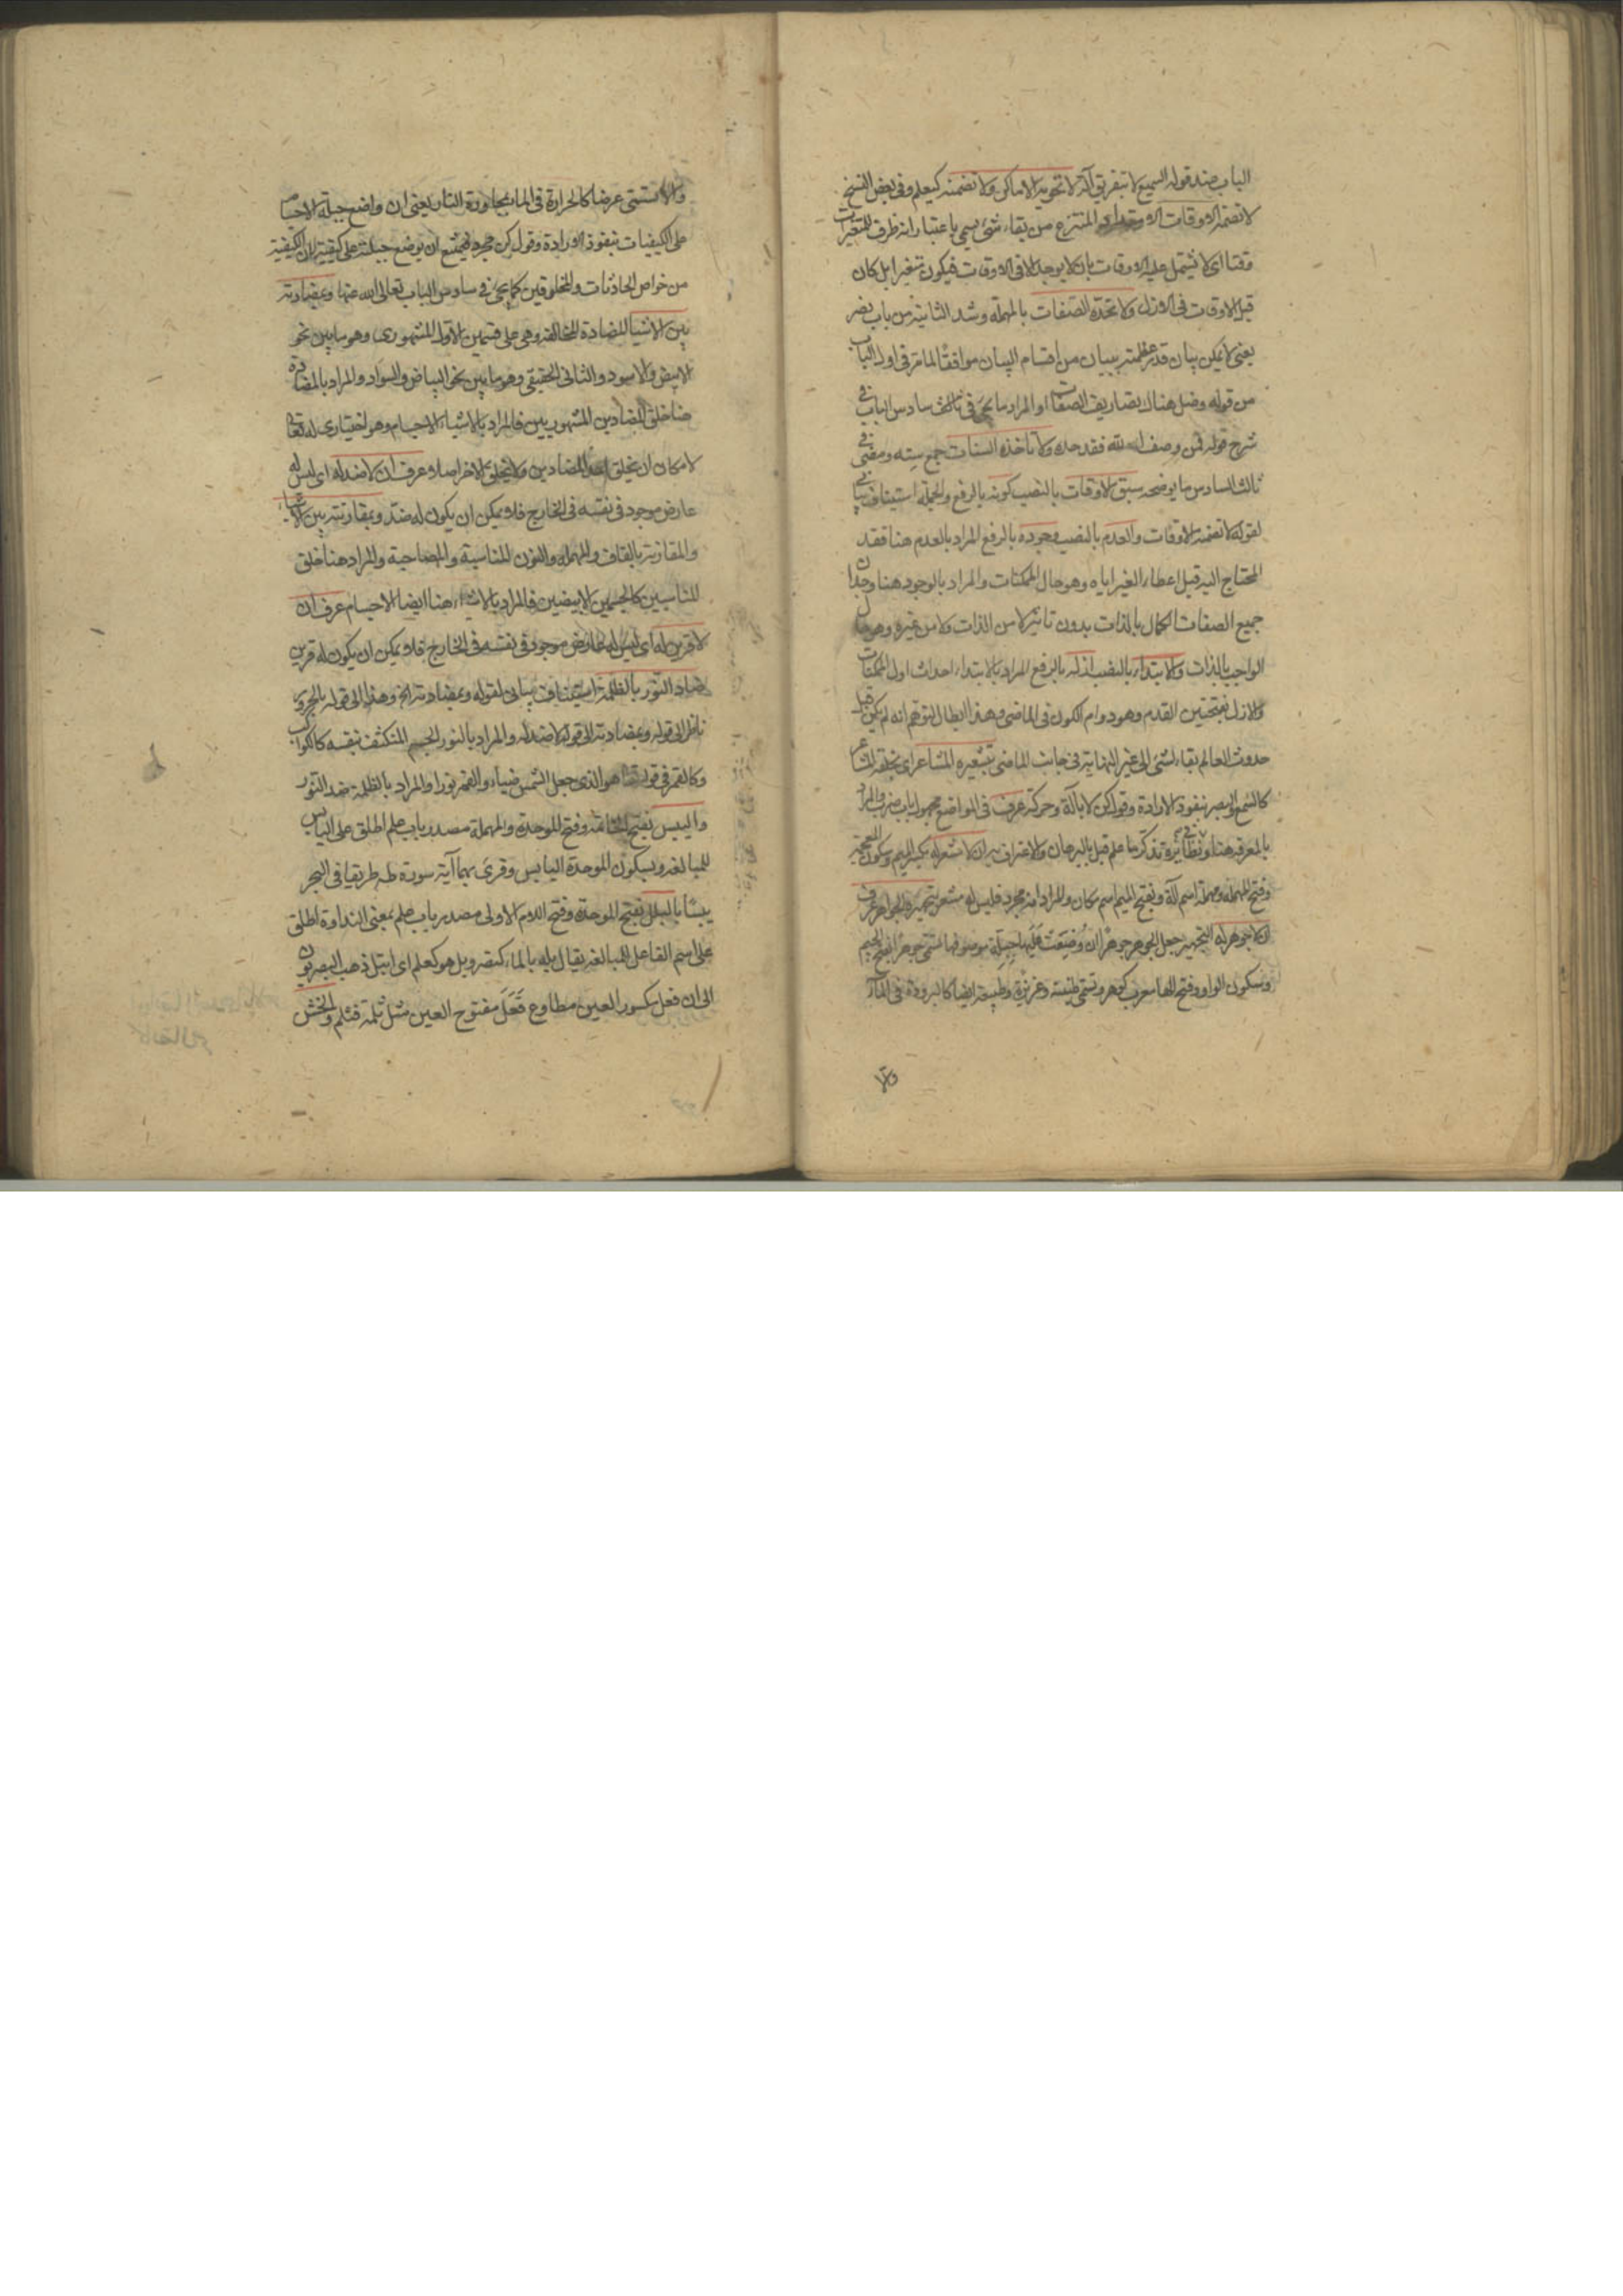 الباب عند قوله السميع لا بتفريق آلة لا تحويه الاماكن ولا تضمنه كيعلم وفى بعض النسخ
لا تضمنه الاوقات المنتزع من بقاء شئ يسمى باعتبار انه ظرف للمتغيرات
وقتا اى لا يشتمل عليه الاوقات بان لا يوجد الا فى الاوقات فيكون متغيرا بل كان
قبل الاوقات فى الازل ولا تحده الصفات بالمهملة وشد الثانية من باب نصر
يعنى لا يمكن بيان قدر عظمته ببيان من اقسام البيان موافقا لما مر فى اول الباب
من قوله وضل هناك تصاريف الصفات او المراد ما يجئ فى ثالث سادس الباب فى
شرح قوله فمن وصف الله فقد حده ولا تاخذه السنات جمع سنه ومضى فى
ثالث السادس ما يوضحه سبق الاوقات بالنصب كونه بالرفع والجملة استيناف بيانى
لقوله لا تضمنه الاوقات والعدم بالنصب وجوده بالرفع المراد بالعدم هنا فقد
المحتاج اليه قبل اعطاء الغير اياه وهو حال الممكنات والمراد بالوجود هنا وجدان
جميع الصفات الكمال بالذات بدون تاثير لا من الذات ولا من غيره وهو حال
الواجب بالذات والابتداء بالنصب ازله بالرفع المراد بالابتداء احداث اول الممكنات
والازل بفتحتين القدم وهو دوام الكون فى الماضى وهذا ابطال لتوهم انه لم يكن قبل
حدوث العالم بقاء لشئ الى غير النهاية فى جانب الماضى بتشعيره المشاعر اى بخلقه المشاعر
كالسمع والبصر بنفوذ الارادة وقول كن لا بآلة وحركة عرف فى المواضع مجهول باب ضرب والمراد
بالمعرفة هنا وفى نظائره تذكر ما علم قبل بالبرهان والاعتراف به ان لا مشعر له بكسر الميم وسكون المعجمة
وفتح المهملة ومهملة اسم آلة وبفتح الميم اسم مكان والمراد انه مجرد فليس له مشعر وبتجهيره الجواهر عرف
ان لا جوهر له التجهير جعل الجوهر جوهرا ان وضعت عليها جبلة موصوفها تسمى جوهرا بفتح الجيم
وسكون الواو وفتح الهاء معرب كوهر وتسمى طينة وغريزة وطبيعة ايضا كالبرودة فى الماء
والا
والا تسمى عرضا كالحرارة فى الماء بمجاورة النار يعنى ان واضع جبلة الاجسام
على الكيفيات بنفوذ الارادة وقول كن مجرد فيمتنع ان يوضع جبلته على كيفية لان الكيفية
من خواص الحادثات والمخلوقين كما يجئ فى سادس الباب تعالى الله عنها وبمضادته
بين الاشياء المضادة المخالفة وهى على قسمين الاول المشهورى وهو ما بين نحو
الابيض والاسود والثانى الحقيقى وهو ما بين نحو البياض والسواد والمراد بالمضادة
هنا خلق المضادين المشهوريين فالمراد بالاشياء الاجسام وهو اختيارى له تعالى
لامكان ان يخلق احد المضادين ولا يخلق الاخر اصلا عرف ان لا ضد له اى ليس له
عارض موجود فى نفسه فى الخارج فلا يمكن ان يكون له ضد وبمقارنته بين الاشياء
والمقارنة بالقاف والمهملة والنون المناسبة والمصاحبة والمراد هنا خلق
المناسبين كالجسمين الابيضين فالمراد بالاشياء هنا ايضا الاجسام عرف ان
لا قرين له اى ليس له عارض موجود فى نفسه فى الخارج فلا يمكن ان يكون له قرين
ضاد النور بالظلمة استيناف بيانى لقوله وبمضادته الخ وهذا الى قوله بالحرور
ناظر الى قوله وبمضادته الى قوله لا ضد له والمراد بالنور الجسم المنكشف بنفسه كالكواكب
وكالقمر فى قوله تعالى هو الذى جعل الشمس ضياء والقمر نورا والمراد بالظلمة ضد النور
واليبس بفتح الخاتمة وفتح الموحدة والمهملة مصدر باب علم اطلق على اليابس
للمبالغة وبسكون الموحدة اليابس وقرئ بهما آية سورة طه طريقا فى البحر
يبسا بالبلل بفتح الموحدة وفتح اللام الاولى مصدر باب علم بمعنى النداوة اطلق
على اسم الفاعل للمبالغة يقال بله بالماء كنصر وبل هو كعلم اى ابتل ذهب البصريون
الى ان فعل مكسور العين مطاوع فعل مفتوح العين مثل ثلمته فثلم والخشن